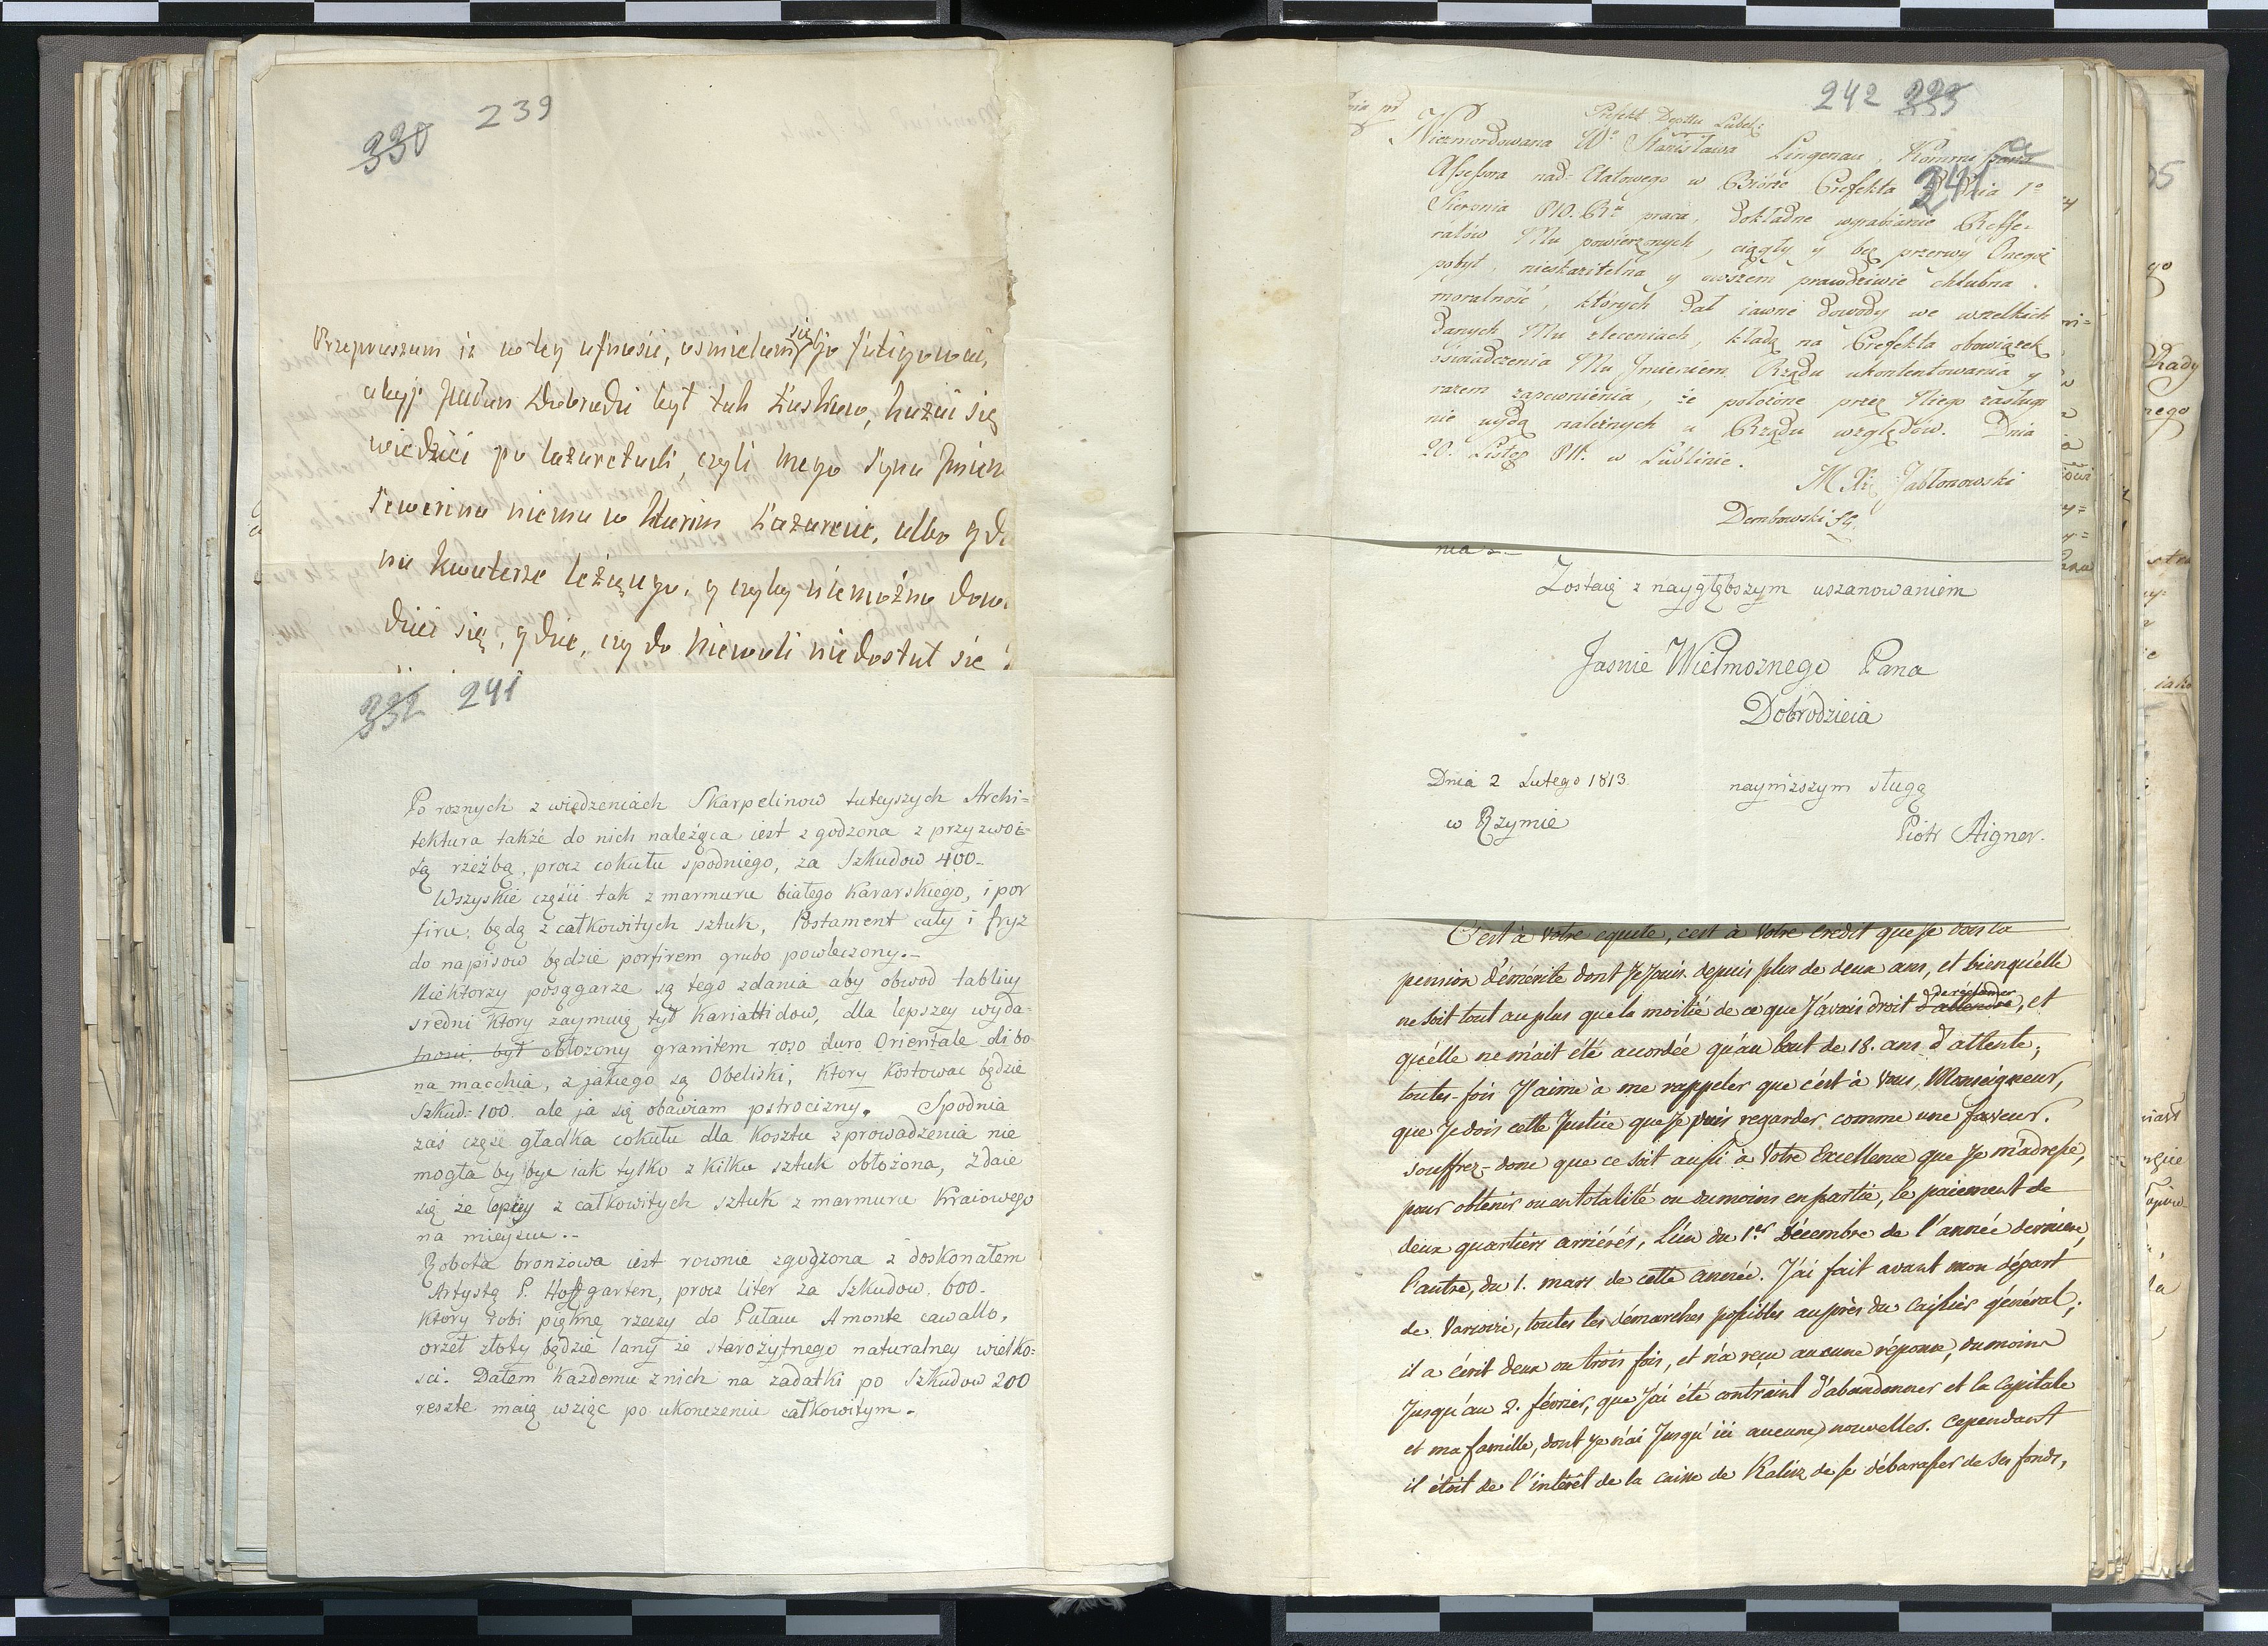 330 239
Przepraszam iż w tey ufności, ośmielam się Jo fatigować,
ażeby Padan Dobrodzi był tak Łaskaw, kazać się
wiedzieć po lazaretach, czyli mego Syna Imien
Seweryna niema w kturim Lazarecie, albo gdz
na kwaterze leżącego, y czyby niemożno dowi
dzieć się, gdzie, czy do niewoli niedostał się
332 241
Po roznych zwiedzeniach Skarpelinow tuteyszych Archi=
tektura także do nich należąca iest zgodzona z przyzwoi=
tą rzeźbą, procz cokułu spodniego, za Szkudow 400-
Wszyskie częsci tak z marmuru białego Kararskiego, i por
firu, będą z całkowitych sztuk, Postament cały i fryz
do napisow będzie porfirem grubo powleczony.-
Niektorzy posągarze są tego zdania aby obwod tablicy
sredni ktory zaymuią tył Kariattidow, dla lepszey wyda=
tnosci, był obłozony granitem roso duro Orientale di bo
na macchia, z jakiego są Obeliski, ktory kostowac będzie
Szkud: 100. ale ja się obawiam pstrocizny. Spodnia
zaś częsc gładka cokułu dla kosztu zprowadzenia nie
mogła by byc iak tylko z kilku sztuk obłożona, Zdaie
się że lepiey z całkowitych sztuk z marmuru Kraiowego
na mieyscu.-
Robota bronzowa iest rownie zgodzona z doskonałem
Artystą P. Hofgarten, procz liter za Szkudow. 600.
ktory robi piękne rzeczy do Pałacu Amonte cawallo,
orzeł złoty będzie lany ze starożytnego naturalney wielko=
sci. Dałem każdemu znich na zadatki po Szkudow 200
reszte maią wziąc po ukonczeniu całkowitym.
242 333
Prefekt Deptu Lubel:
Niezmordowana Wo Stanisława Lingenau, Kommissarza
Assessora nad-Etatowego w Biórze Prefekta Dnia 1o
241
Sierpnia 810. Ra praca, dokładne wyrabianie Reffe=
ratów Mu powierzonych, ciągły y bez przerwy Onegoż
pobyt, nieskazitelna y owszem prawdziwie chlubna
moralność, których dał iawne dowody we wszelkich
danych Mu zleceniach, kładą na Prefekta obowiązek
oświadczenia Mu Imieniem Rządu ukontentowania y
razem zapewnienia, że położone przez Niego zasługi
nie uydą należnych u Rządu względów. Dnia
20. Listop 811. w Lublinie.
M Xże Jabłonowski
Dembowski SG.
nia
Zostaię z naygłębszym uszanowaniem
Jasnie Wielmoznego Pana
Dobrodzieia
Dnia 2 Lutego 1813.
nayniższym sługą
w Rzymie
Piotr Aigner.
C'est à Votre equité, c'est à Votre credit que je dois la
pension d'émérite dont je jouis depuis plus de deux ans, et bienqu'elle
ne soit tout au plus que la moitié de ce que j'avais droit d'attendre de réclamer, et
qu'elle ne m'ait été accordée qu'au bout de 18. ans d'attente;
toutes-fois j'aime à me rappeler que c'est à Vous, Monseigneur,
que je dois cette Justice que je puis regarder comme une faveur.
souffrez-donc que ce soit aussi à Votre Excellence que je m'adresse,
pour obtenir ou en totalité ou dumoins en partie, le paiement de
deux quartiers arriérés, l'un du 1er Décembre de l'année derniere,
l'autre, du 1. mars de cette année. J'ai fait avant mon départ
de Varsovie, toutes les démarches possibles auprès du Caissier général;
il a écrit deux ou trois fois, et n'a reçu aucune réponse, dumoins
jusqu'au 2. février, que j'ai été contraint d'abandonner et la Capitale
et ma famille, dont je n'ai jusqu'ici aucunes nouvelles. Cependant
il étoit de l'intérêt de la caisse de Kalisz de se débarasser de ses fonds,